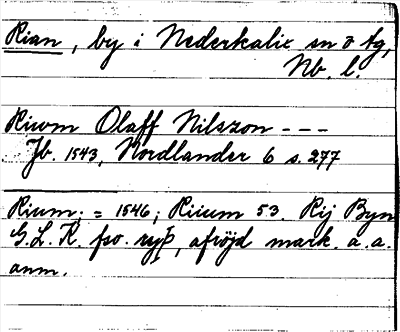 Rian, by i Nederkalix sn o tg,
Nb. l.
Riwm Olaff Nilszon - - -
Jb. 1543, Nordlander 6 s. 277
Rium: = 1546; Riium 53. Rij Byn
G. L. K. fso. ryþ, afröjd mark. a. a.
anm.